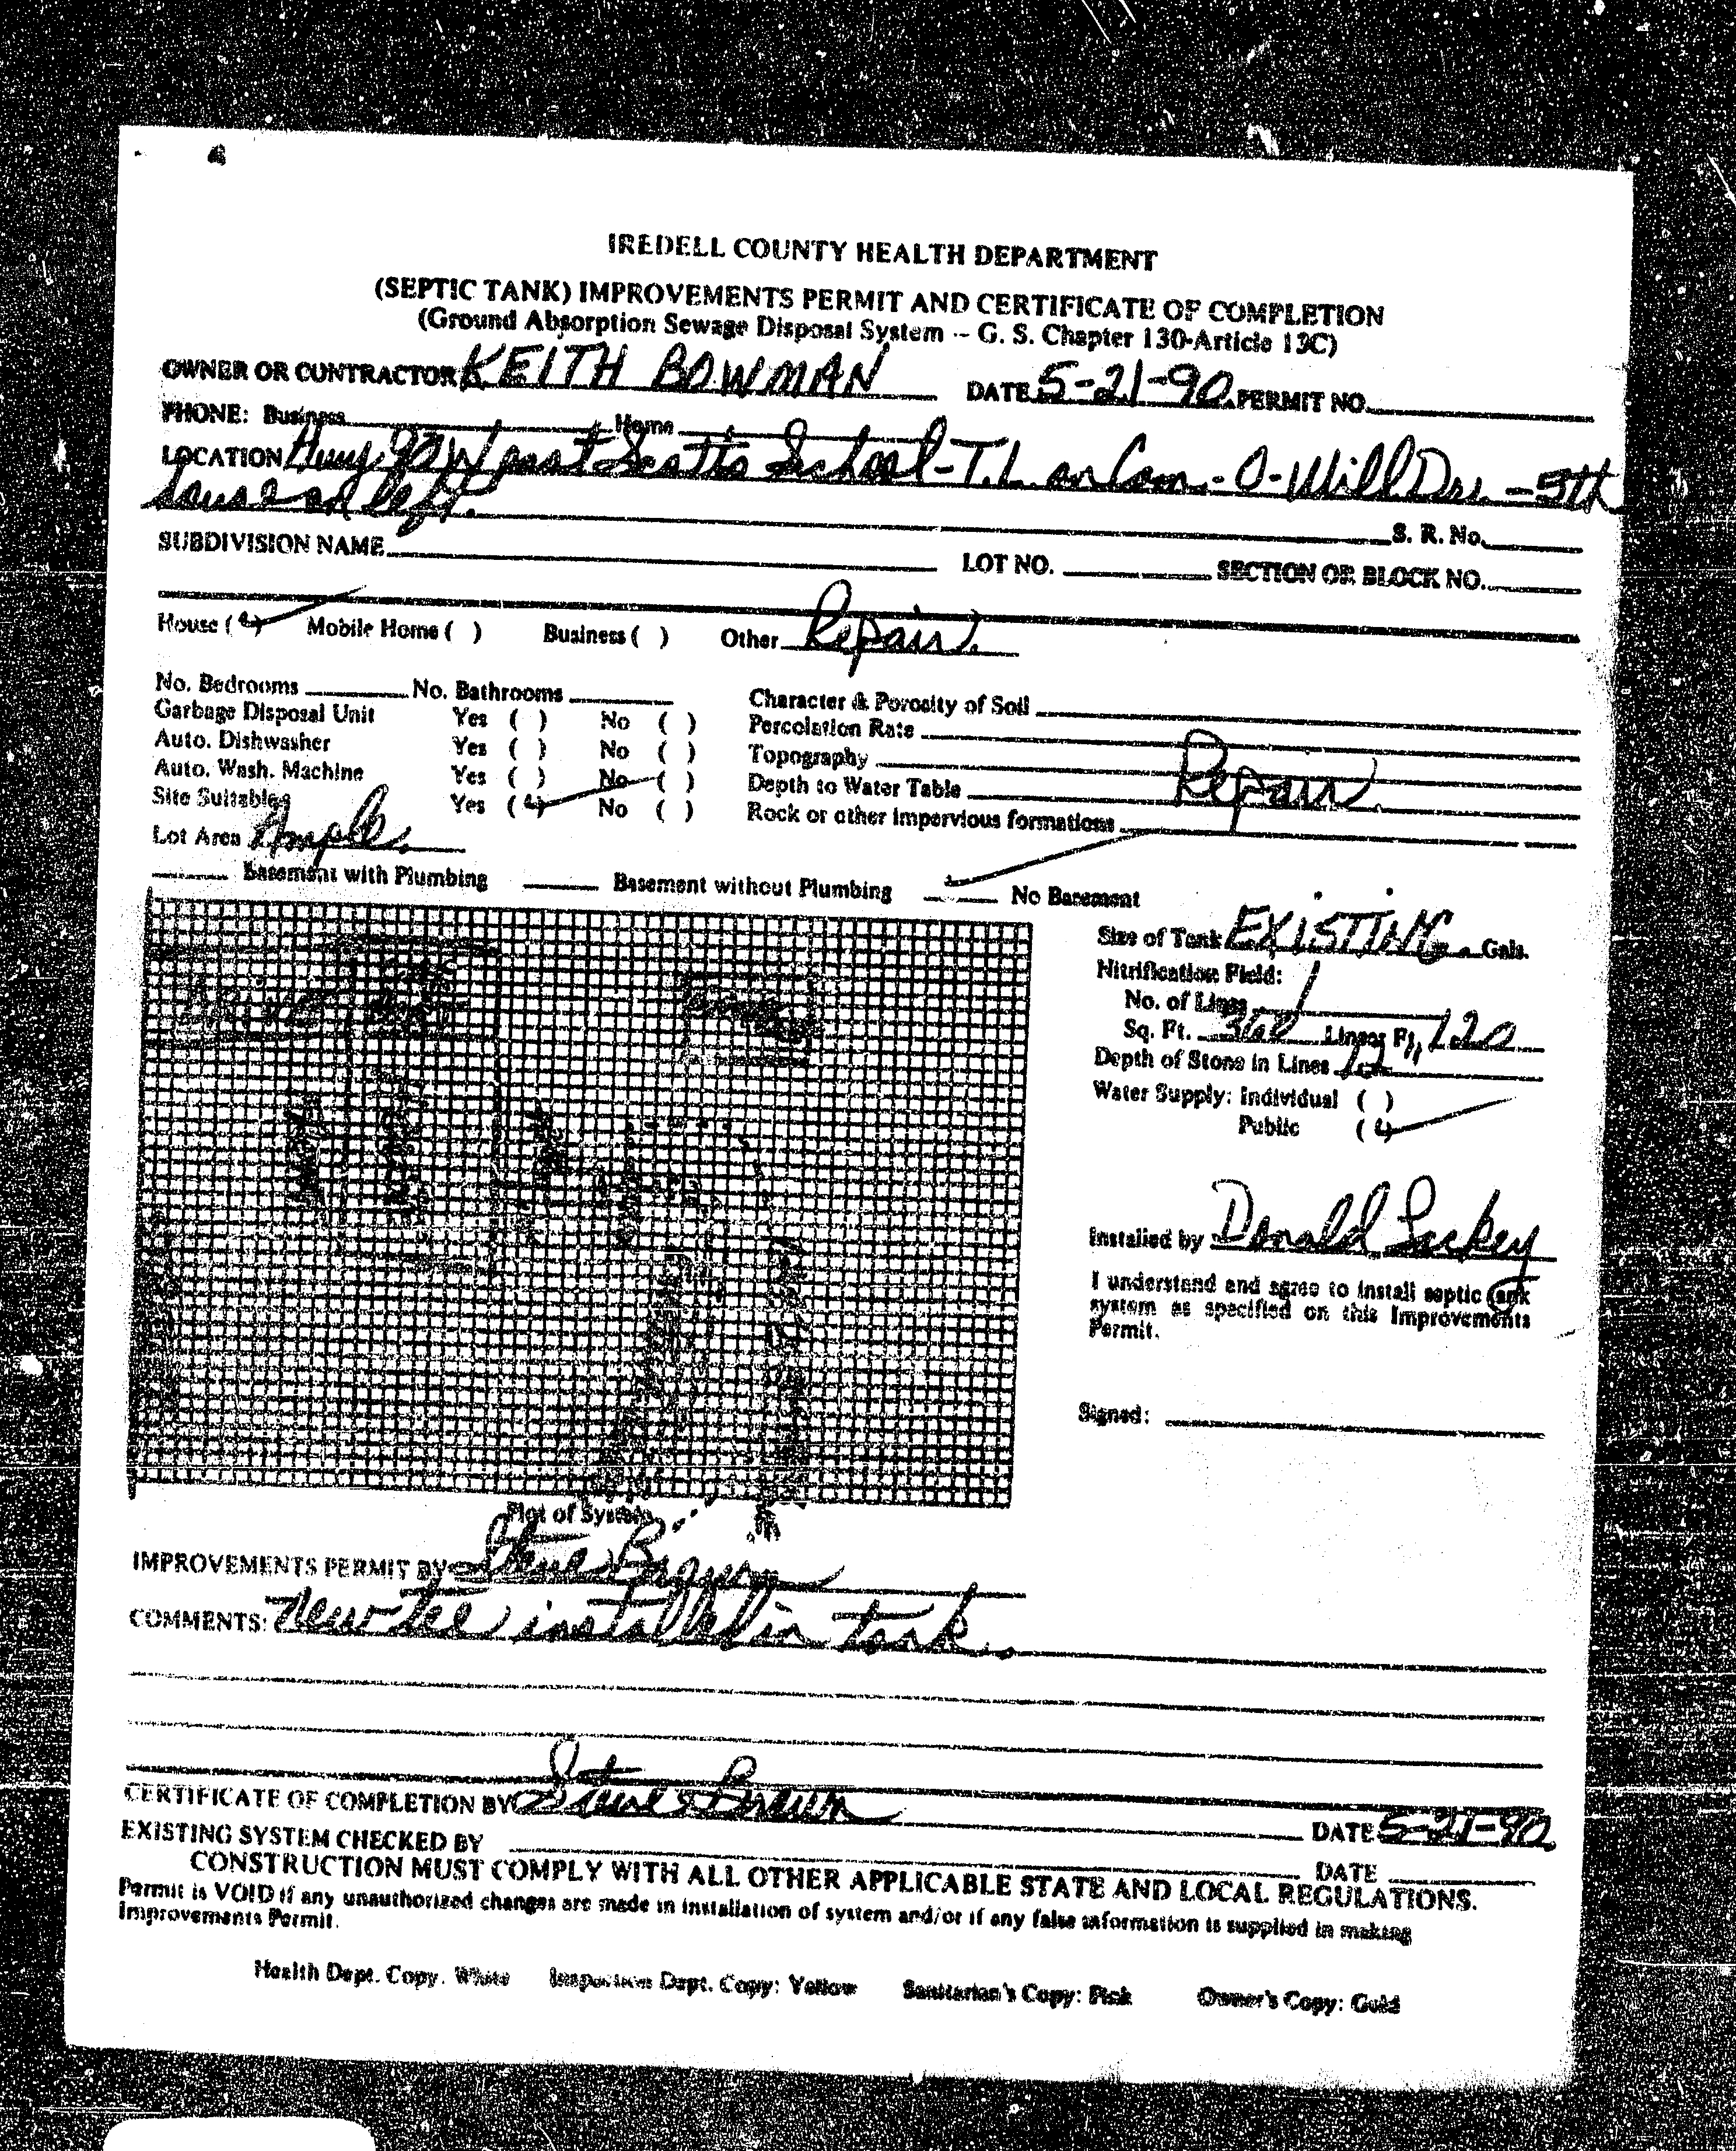 IREDELL COUNTY HEALTH DEPARTMENT
(SEPTIC TANK) IMPROVEMENTS PERMIT AND CERTIFICATE OF COMPLETION
(Ground Absorption Sewage Disposal System -- G. S. Chapter 130-Article 13C)
OWNER OR CONTRACTOR KEITH BOWMAN DATE 5-21-90 PERMIT NO.
PHONE: Business Home
LOCATION Hwy 90 W past Scotts School - T.L. on Cam-O-Mill Dr. - 5th
house on left.
S. R. No.
SUBDIVISION NAME LOT NO. SECTION OR BLOCK NO.
House ( ) Mobile Home ( ) Business ( ) Other Repair.
No. Bedrooms No. Bathrooms Character & Porosity of Soil
Garbage Disposal Unit Yes ( ) No ( ) Percolation Rate
Auto. Dishwasher Yes ( ) No ( ) Topography Repair.
Auto. Wash. Machine Yes ( ) No ( ) Depth to Water Table
Site Suitable Yes ( ) No ( ) Rock or other impervious formations
Lot Area Ample.
Basement with Plumbing Basement without Plumbing No Basement
Size of Tank EXISTING. Gals.
Nitrification Field:
No. of Lines 1
Sq. Ft. 360 Linear Ft. 120
Depth of Stone in Lines 12
Water Supply: Individual ( )
Public ( )
Installed by Donald Lackey
I understand and agree to install septic tank
system as specified on this Improvements
Permit.
Signed:
Plot of System
IMPROVEMENTS PERMIT BY Steve Brown
COMMENTS: New tee installed in tank.
CERTIFICATE OF COMPLETION BY Steve Brown DATE 5-21-90
EXISTING SYSTEM CHECKED BY DATE
CONSTRUCTION MUST COMPLY WITH ALL OTHER APPLICABLE STATE AND LOCAL REGULATIONS.
Permit is VOID if any unauthorized changes are made in installation of system and/or if any false information is supplied in making
Improvements Permit.
Health Dept. Copy. White Inspections Dept. Copy: Yellow Sanitarian's Copy: Pink Owner's Copy: Gold